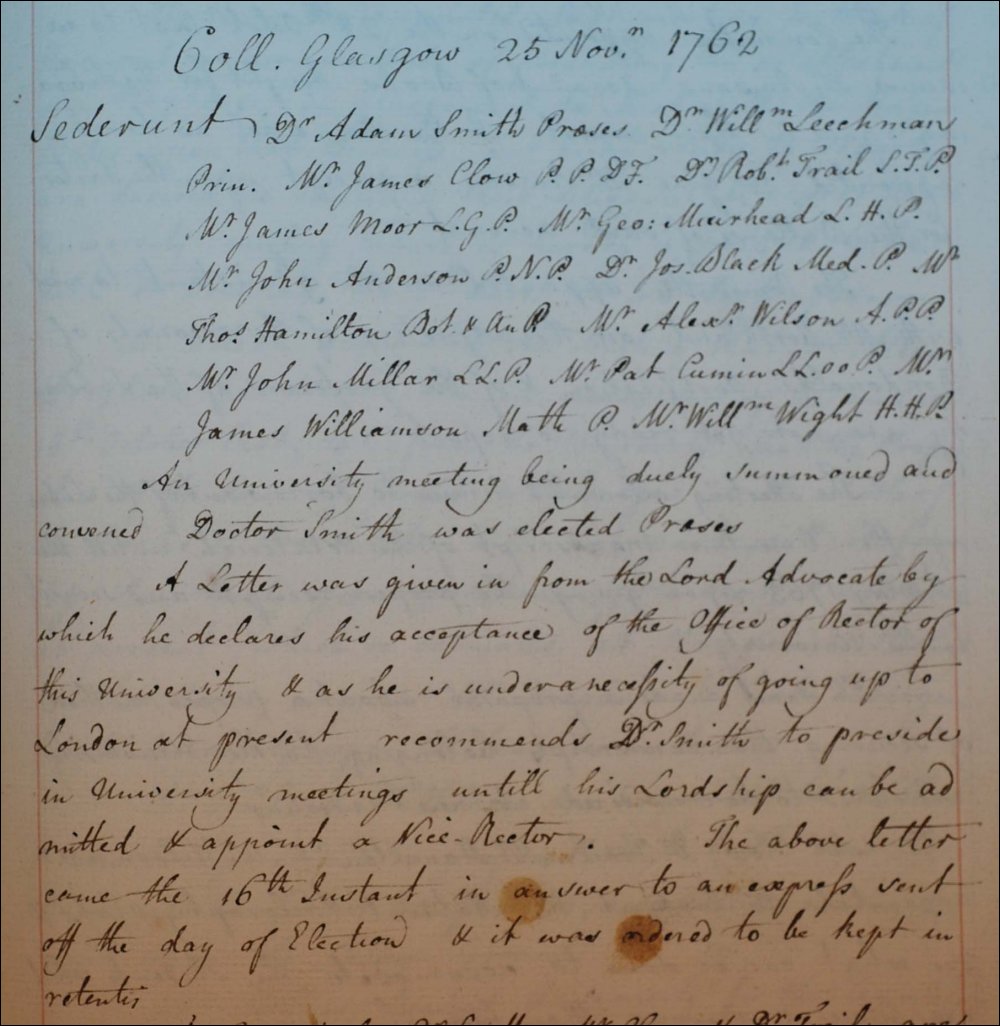 Coll. Glasgow 25 Nov.n 1762
Sederunt Dr Adam Smith Præses Dr Willm Leechman
Prin. Mr James Clow P. P. D F. Dr Robt Trail S. T. P.
Mr James Moor L. G. P. Mr Geo: Muirhead L. H. P.
Mr John Anderson P. N. P. Dr Jos. Black Med. P. Mr
Thos Hamilton Bot. & An P. Mr Alexr Wilson A. P. P.
Mr John Millar L L. P. Mr Pat Cumin L L. oo P. Mr
James Williamson Math P. Mr Willm Wight H. H. P.
An University meeting being duely summoned and
convened Doctor Smith was elected Præses
A Letter was given in from the Lord Advocate by
which he declares his acceptance of the Office of Rector of
this University & as he is under a necessity of going up to
London at present recommends Dr Smith to preside
in University meetings untill his Lordship can be ad
mitted & appoint a Vice-Rector. The above letter
came the 16th Instant in answer to an express sent
off the day of Election & it was ordered to be kept in
retentis